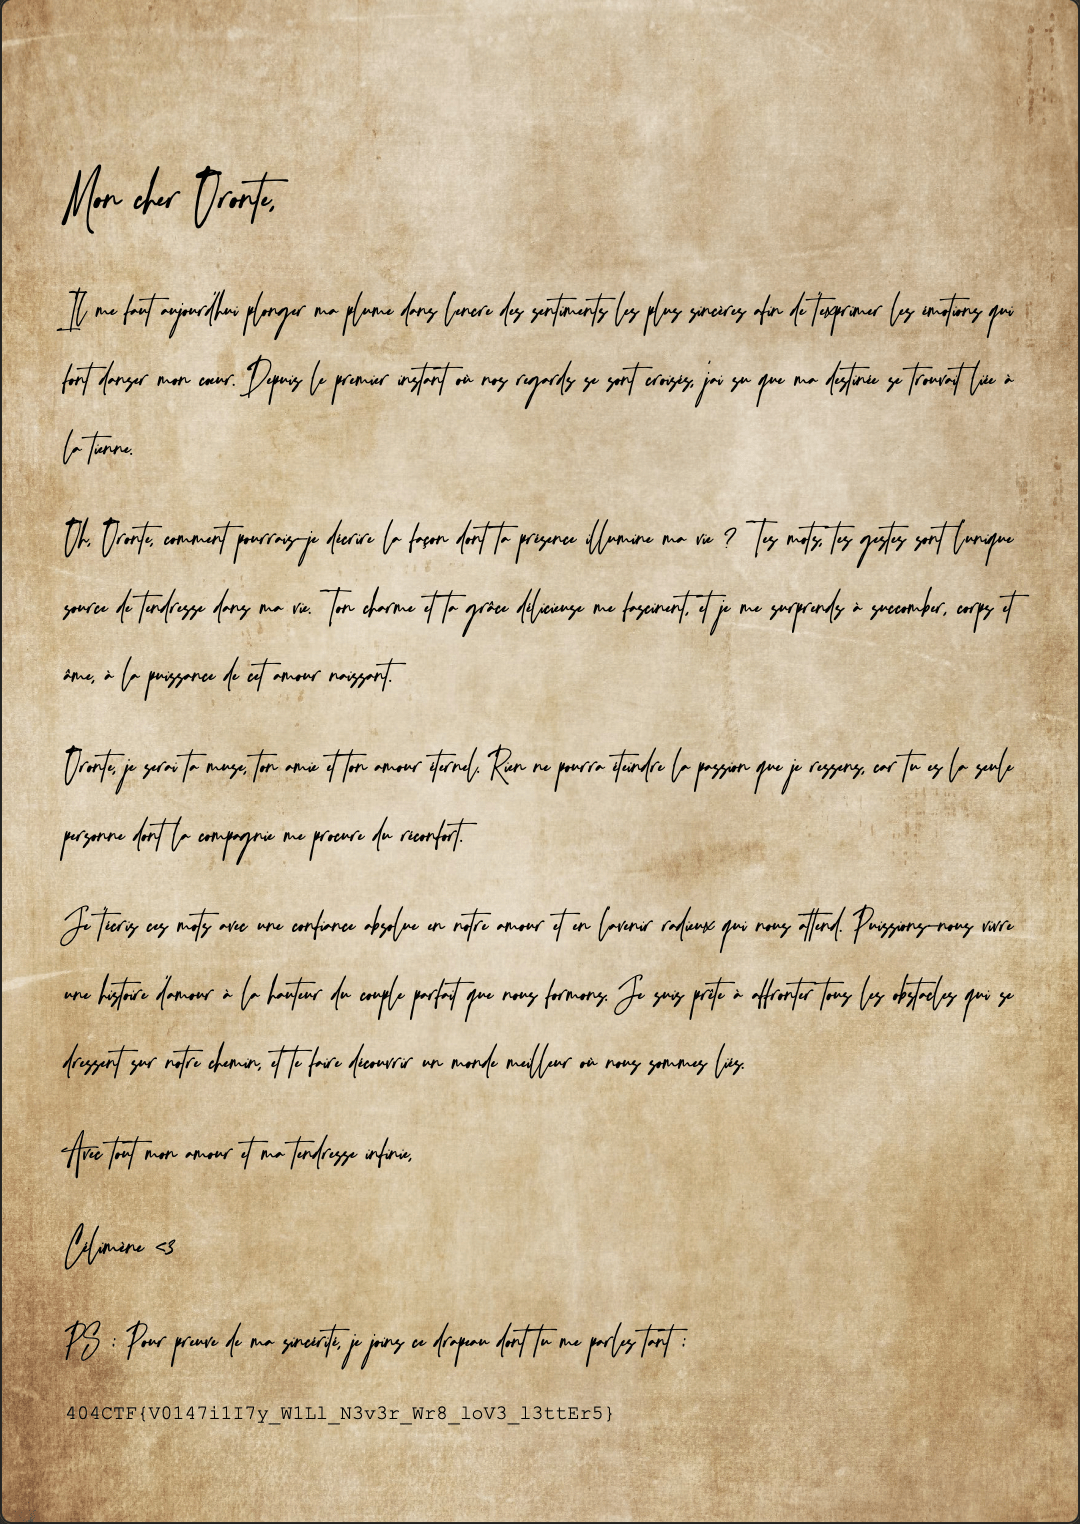 Mon cher Oronte,
Il me faut aujourd'hui plonger ma plume dans l'encre des sentiments les plus sincères afin de t'exprimer les émotions qui
font danser mon cœur. Depuis le premier instant où nos regards se sont croisés, j'ai su que ma destinée se trouvait liée à
la tienne.
Oh, Oronte, comment pourrais-je décrire la façon dont ta présence illumine ma vie ? Tes mots, tes gestes sont l'unique
source de tendresse dans ma vie. Ton charme et ta grâce délicieuse me fascinent, et je me surprends à succomber, corps et
âme, à la puissance de cet amour naissant.
Oronte, je serai ta muse, ton amie et ton amour éternel. Rien ne pourra éteindre la passion que je ressens, car tu es la seule
personne dont la compagnie me procure du réconfort.
Je t'écris ces mots avec une confiance absolue en notre amour et en l'avenir radieux qui nous attend. Puissions-nous vivre
une histoire d'amour à la hauteur du couple parfait que nous formons. Je suis prête à affronter tous les obstacles qui se
dressent sur notre chemin, et te faire découvrir un monde meilleur où nous sommes liés.
Avec tout mon amour et ma tendresse infinie,
Célimène <3
PS : Pour preuve de ma sincérité, je joins ce drapeau dont tu me parles tant :
404CTF{V0147i1I7y_W1Ll_N3v3r_Wr8_loV3_l3ttEr5}